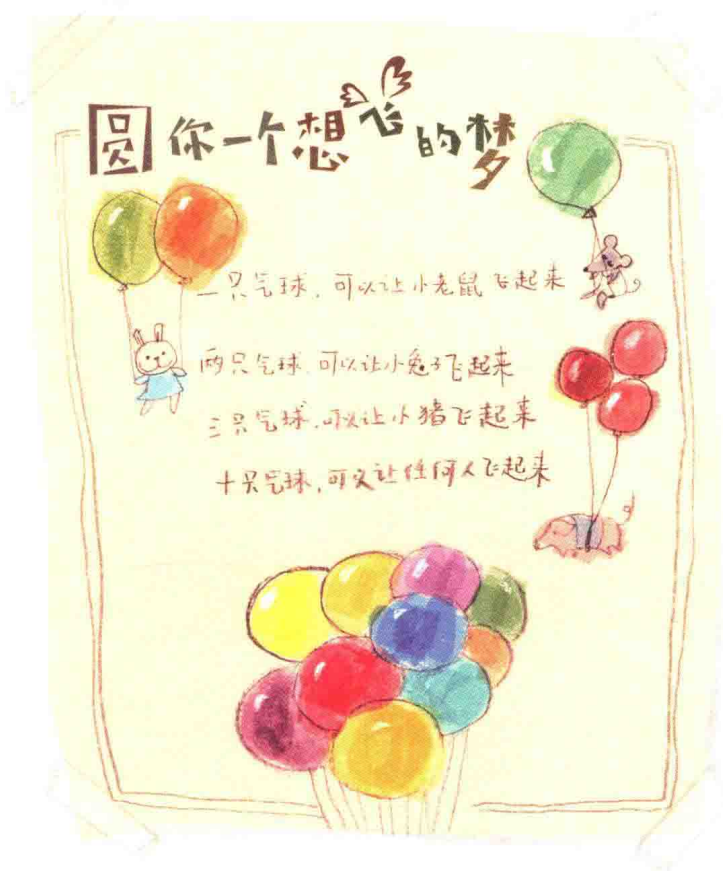 圆你一个想飞的梦
一只气球，可以让小老鼠飞起来
两只气球，可以让小兔子飞起来
三只气球，可以让小猪飞起来
十只气球，可以让任何人飞起来